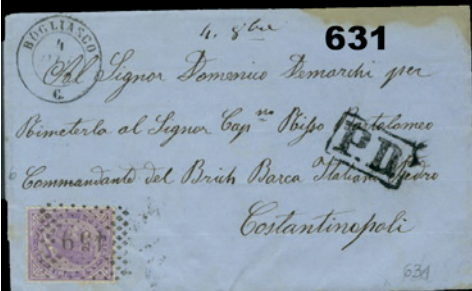 4. 8bre
631
BOGLIASCO
4
G.
Al Signor Domenico Demarchi per
Rimeterlo al Signor Capno Risso Bartolomeo
P.D
Commandante del Brich Barca Italiano Pedro
Costantinopoli
439
634